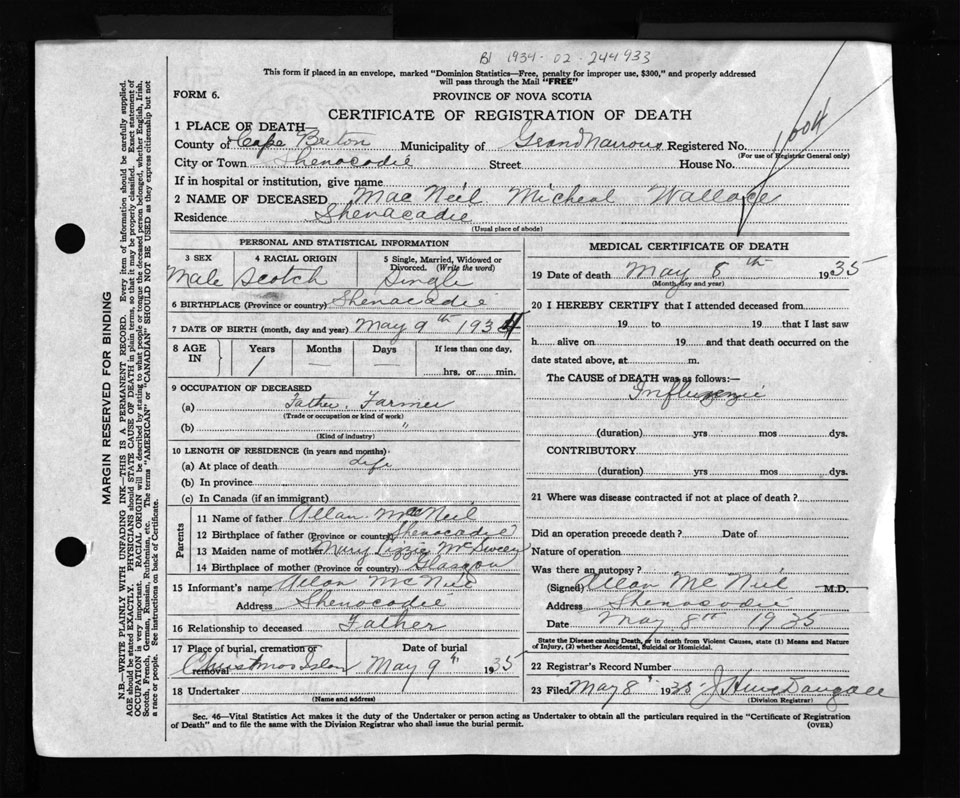 B1 1934-02-244933
This form if placed in an envelope, marked "Dominion Statistics—Free, penalty for improper use, $300," and properly addressed
will pass through the Mail "FREE"
FORM 6.
PROVINCE OF NOVA SCOTIA
CERTIFICATE OF REGISTRATION OF DEATH
1 PLACE OF DEATH—
County of Cape Breton Municipality of Grand Narrows Registered No.
(For use of Registrar General only)
City or Town Shenacadie Street House No.
If in hospital or institution, give name
2 NAME OF DECEASED Mac Neil Micheal Wallace
Residence Shenacadie
(Usual place of abode)
PERSONAL AND STATISTICAL INFORMATION
3 SEX 4 RACIAL ORIGIN 5 Single, Married, Widowed or
Divorced. (Write the word)
Male Scotch Single
6 BIRTHPLACE (Province or country) Shenacadie
7 DATE OF BIRTH (month, day and year) May 9th 1934
8 AGE IN Years Months Days If less than one day,
1 — — hrs. or min.
9 OCCUPATION OF DECEASED
(a) Father, Farmer
(Trade or occupation or kind of work)
(b) "
(Kind of industry)
10 LENGTH OF RESIDENCE (in years and months)
(a) At place of death Life
(b) In province
(c) In Canada (if an immigrant)
Parents
11 Name of father Allan MacNeil
12 Birthplace of father (Province or country) Shenacadie
13 Maiden name of mother Mary Lizzie McSween
14 Birthplace of mother (Province or country) Glasgow
15 Informant's name Allan McNeil
Address Shenacadie
16 Relationship to deceased Father
17 Place of burial, cremation or removal Date of burial
Christmas Islan May 9th 1935
18 Undertaker
(Name and address)
MEDICAL CERTIFICATE OF DEATH
19 Date of death May 8th 1935
(Month, day and year)
20 I HEREBY CERTIFY that I attended deceased from
19 to 19 that I last saw
h alive on 19 and that death occurred on the
date stated above, at m.
The CAUSE of DEATH was as follows:—
(duration) yrs mos dys.
CONTRIBUTORY
(duration) yrs mos dys.
21 Where was disease contracted if not at place of death?
Did an operation precede death? Date of
Nature of operation
Was there an autopsy?
(Signed) Allan McNeil M.D.
Address Shenacadie
Date May 8th 1935
State the Disease causing Death, or in death from Violent Causes, state (1) Means and Nature
of Injury, (2) whether Accidental, Suicidal or Homicidal.
22 Registrar's Record Number
23 Filed May 8 1935
(Division Registrar)
Sec. 46—Vital Statistics Act makes it the duty of the Undertaker or person acting as Undertaker to obtain all the particulars required in the "Certificate of Registration
of Death" and to file the same with the Division Registrar who shall issue the burial permit. (OVER)
MARGIN RESERVED FOR BINDING
N.B.—WRITE PLAINLY WITH UNFADING INK—THIS IS A PERMANENT RECORD. Every item of information should be carefully supplied.
AGE should be stated EXACTLY. PHYSICIANS should STATE CAUSE OF DEATH in plain terms, so that it may be properly classified. Exact statement of
OCCUPATION is very important. RACIAL ORIGIN will be described by stating to what people or tongue the deceased person belonged, whether English, Irish,
Scotch, French, German, Russian, Ruthenian, etc. The terms "AMERICAN" or "CANADIAN" SHOULD NOT BE USED as they express citizenship but not
a race or people. See instructions on back of Certificate.